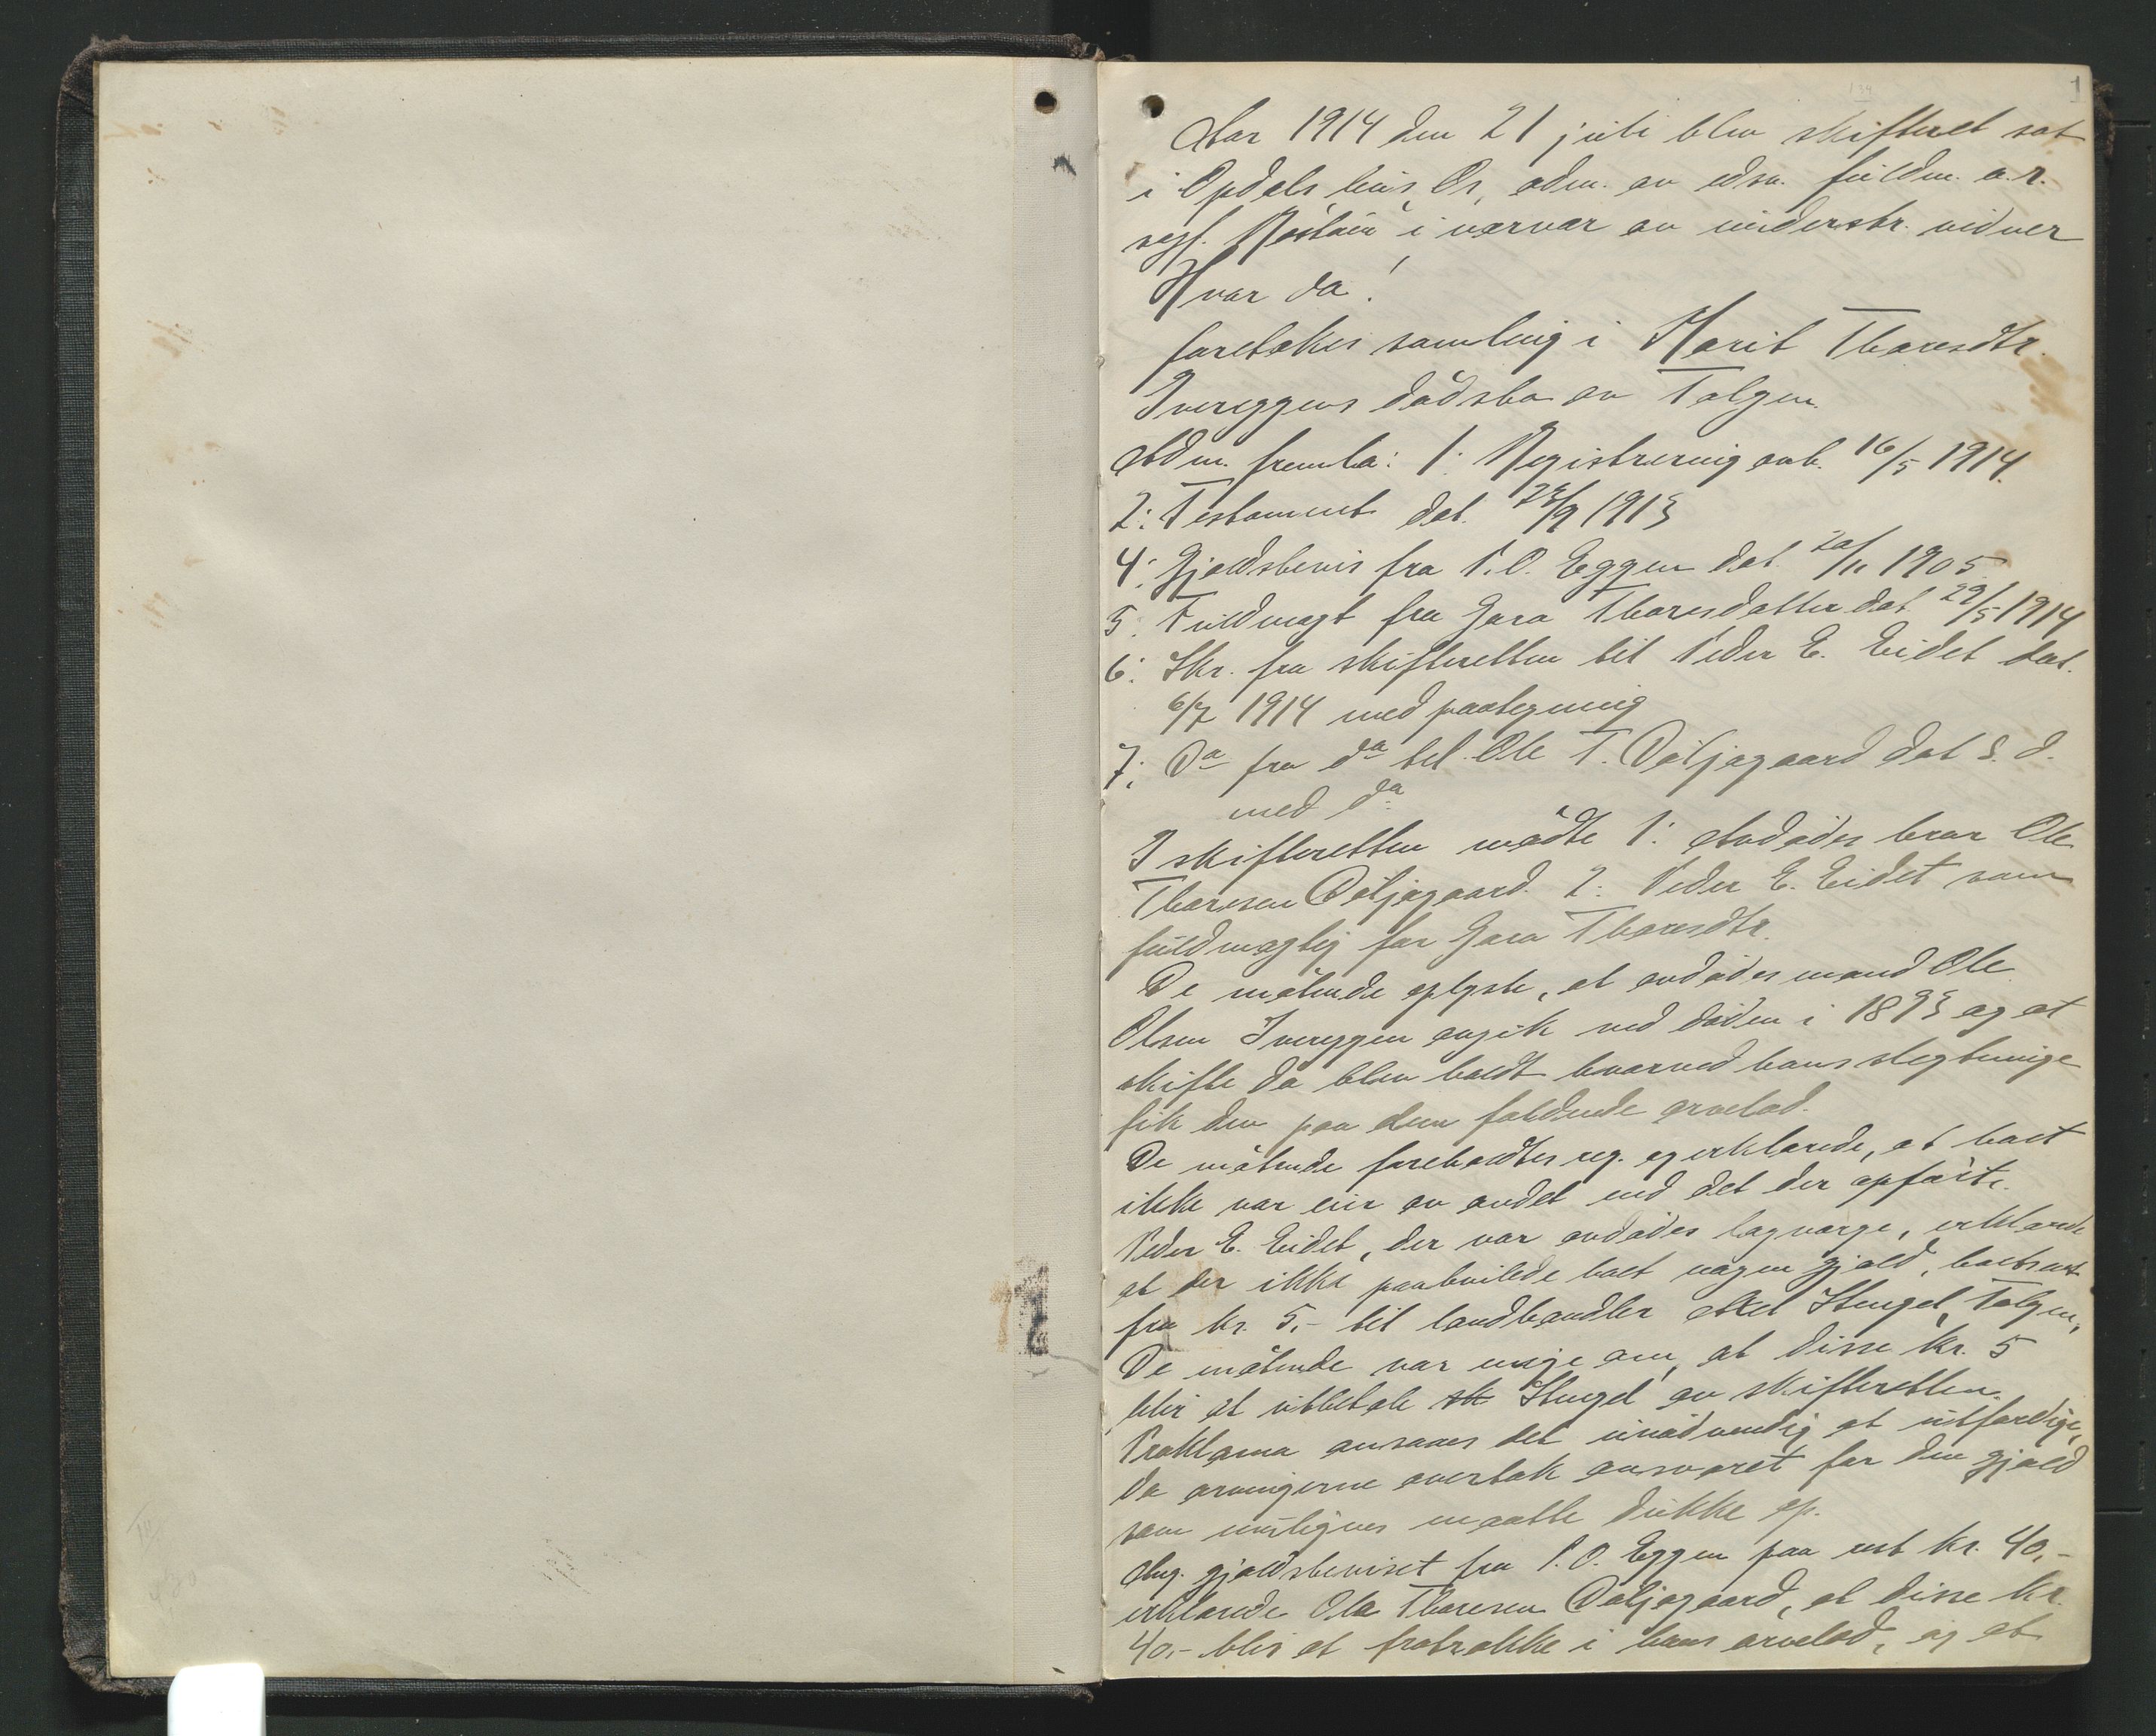 1
134
Aar 1914 den 21 juli blev skifteret sat
i Opdals hus, Os, adm. av edsv. fuldm. o.r.
sagf. Röstum i nærvær av underskr. vidner
Hvor da!
foretokes samling i Marit Thoresdtr.
Ivereggens dödsbo av Tolgen.
Adm. fremla: 1: Registrering avh. 16/5 1914.
2: Testament dat. 23/9 1913
4: Gjældsbevis fra P. O. Eggen dat. 20/11 1905
5. Fuldmagt fra Gora Thoresdatter dat 29/5 1914
6: Skr. fra skifteretten til Peder E. Eidet dat.
6/7 1914 med paategning
7: Do fra do til Ole T. Döljagaard dat s. d.
med do
I skifteretten mödte 1: Avdödes bror Ole
Thoresen Döljagaard. 2: Peder E. Eidet som
fuldmægtig for Gora Thoresdtr.
De mötende oplyste, at avdödes mand Ole
Olsen Ivereggen avgik ved döden i 1893 og at
skifte da blev holdt hvorved hans slegtninge
fik den paa dem faldende arvelod.
De mötende foreholdtes reg. og erklærede, at boet
ikke var eier av andet end det der opförte.
Peder E. Eidet, der var avdödes lagværge, erklærede
at der ikke paahvilede boet nogen gjæld, bortset
fra kr. 5,- til landhandler Axel Stengel, Tolgen,
De mötende var enige om, at disse kr. 5
blir at utbetale Stengel av skifteretten.
Proklama ansaaes det unödvendig at utfærdige,
da arvingerne overtok ansvaret for den gjæld
som muligens maatte dukke op.
Ang. gjældsbeviset fra P. O. Eggen paa rest kr. 40,-
erklærede Ole Thoresen Döljagaard, at disse kr.
40,- blir at fratrække i hans arvelod, og at